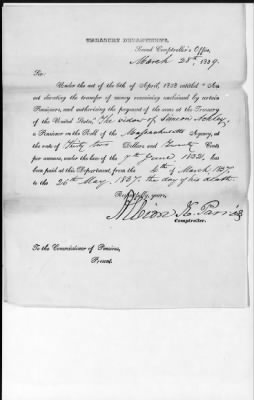 TREASURY DEPARTMENT,
Second Comptroller's Office,
March 28th 1839.
Sir:
Under the act of the 6th of April, 1838 entitled "An
act directing the transfer of money remaining unclaimed by certain
Pensioners, and authorizing the payment of the same at the Treasury
of the United States," The widow of Simeon
a Pensioner on the Roll of the Massachusetts Agency, at
the rate of Thirty two Dollars and Twenty Cents
per annum, under the law of the 7th June 1832, has
been paid at this Department, from the 4th of March 1837,
to the 26th May, 1837. the day of his death.
Respectfully, yours,
Albion K. Parris
Comptroller.
To the Commissioner of Pensions,
Present.